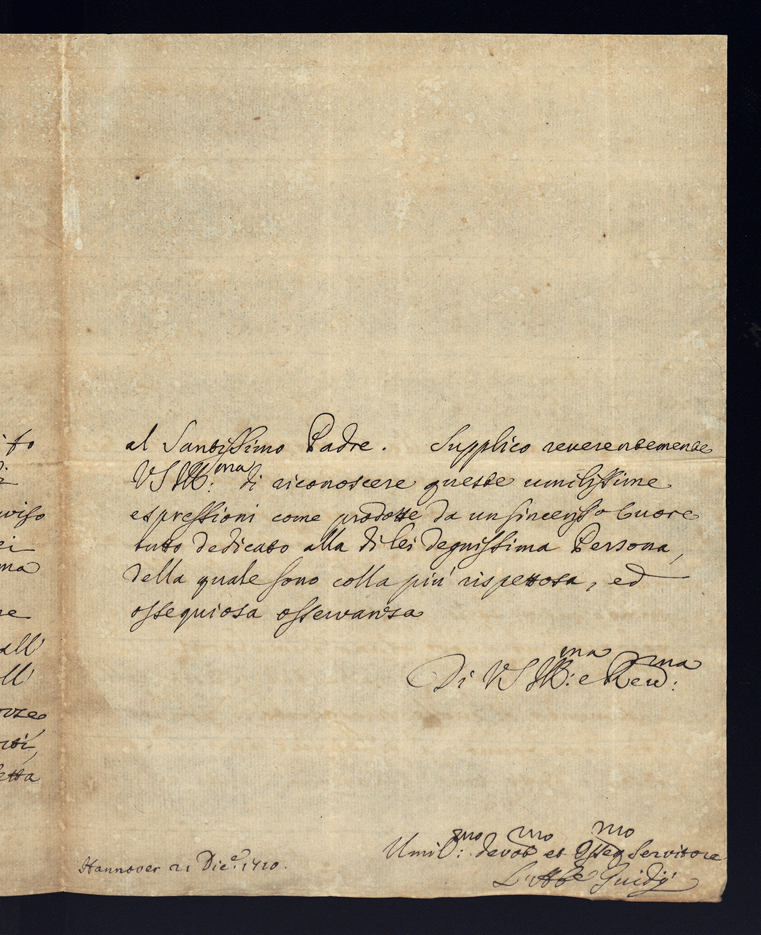 al Santissimo Padre. Supplico reverentemente
VS Ill:ma di riconoscere queste umilissime
espressioni come prodotte da un sincero Cuore
tutto dedicato alla di lei degnissima Persona,
della quale sono colla più rispettosa, ed
ossequiosa osservanza
Di VS Ill:ma e Rev:ma
Umil:mo devot:mo et Osseq:mo Servitore
L'Abbe Guidi
Hannover 21 Dice. 1710.
all'
ll'